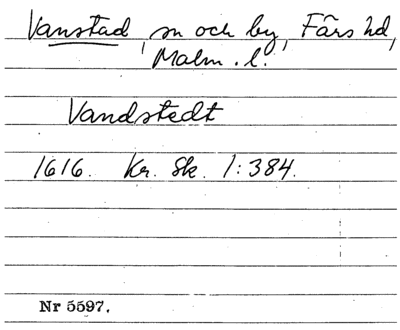 Vanstad, sn och by, Färs hd,
Malm. l.
Vandstedt
1616. Kr. Sk. 1:384.
Nr 5597.